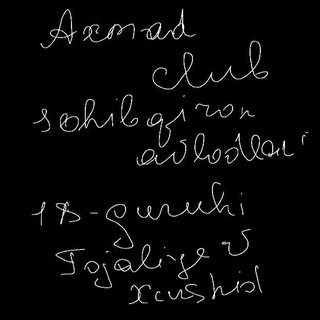 Axmad
club
sohibqiron
avlodlari
1B-guruhi
Tojaliyev
Xurshid